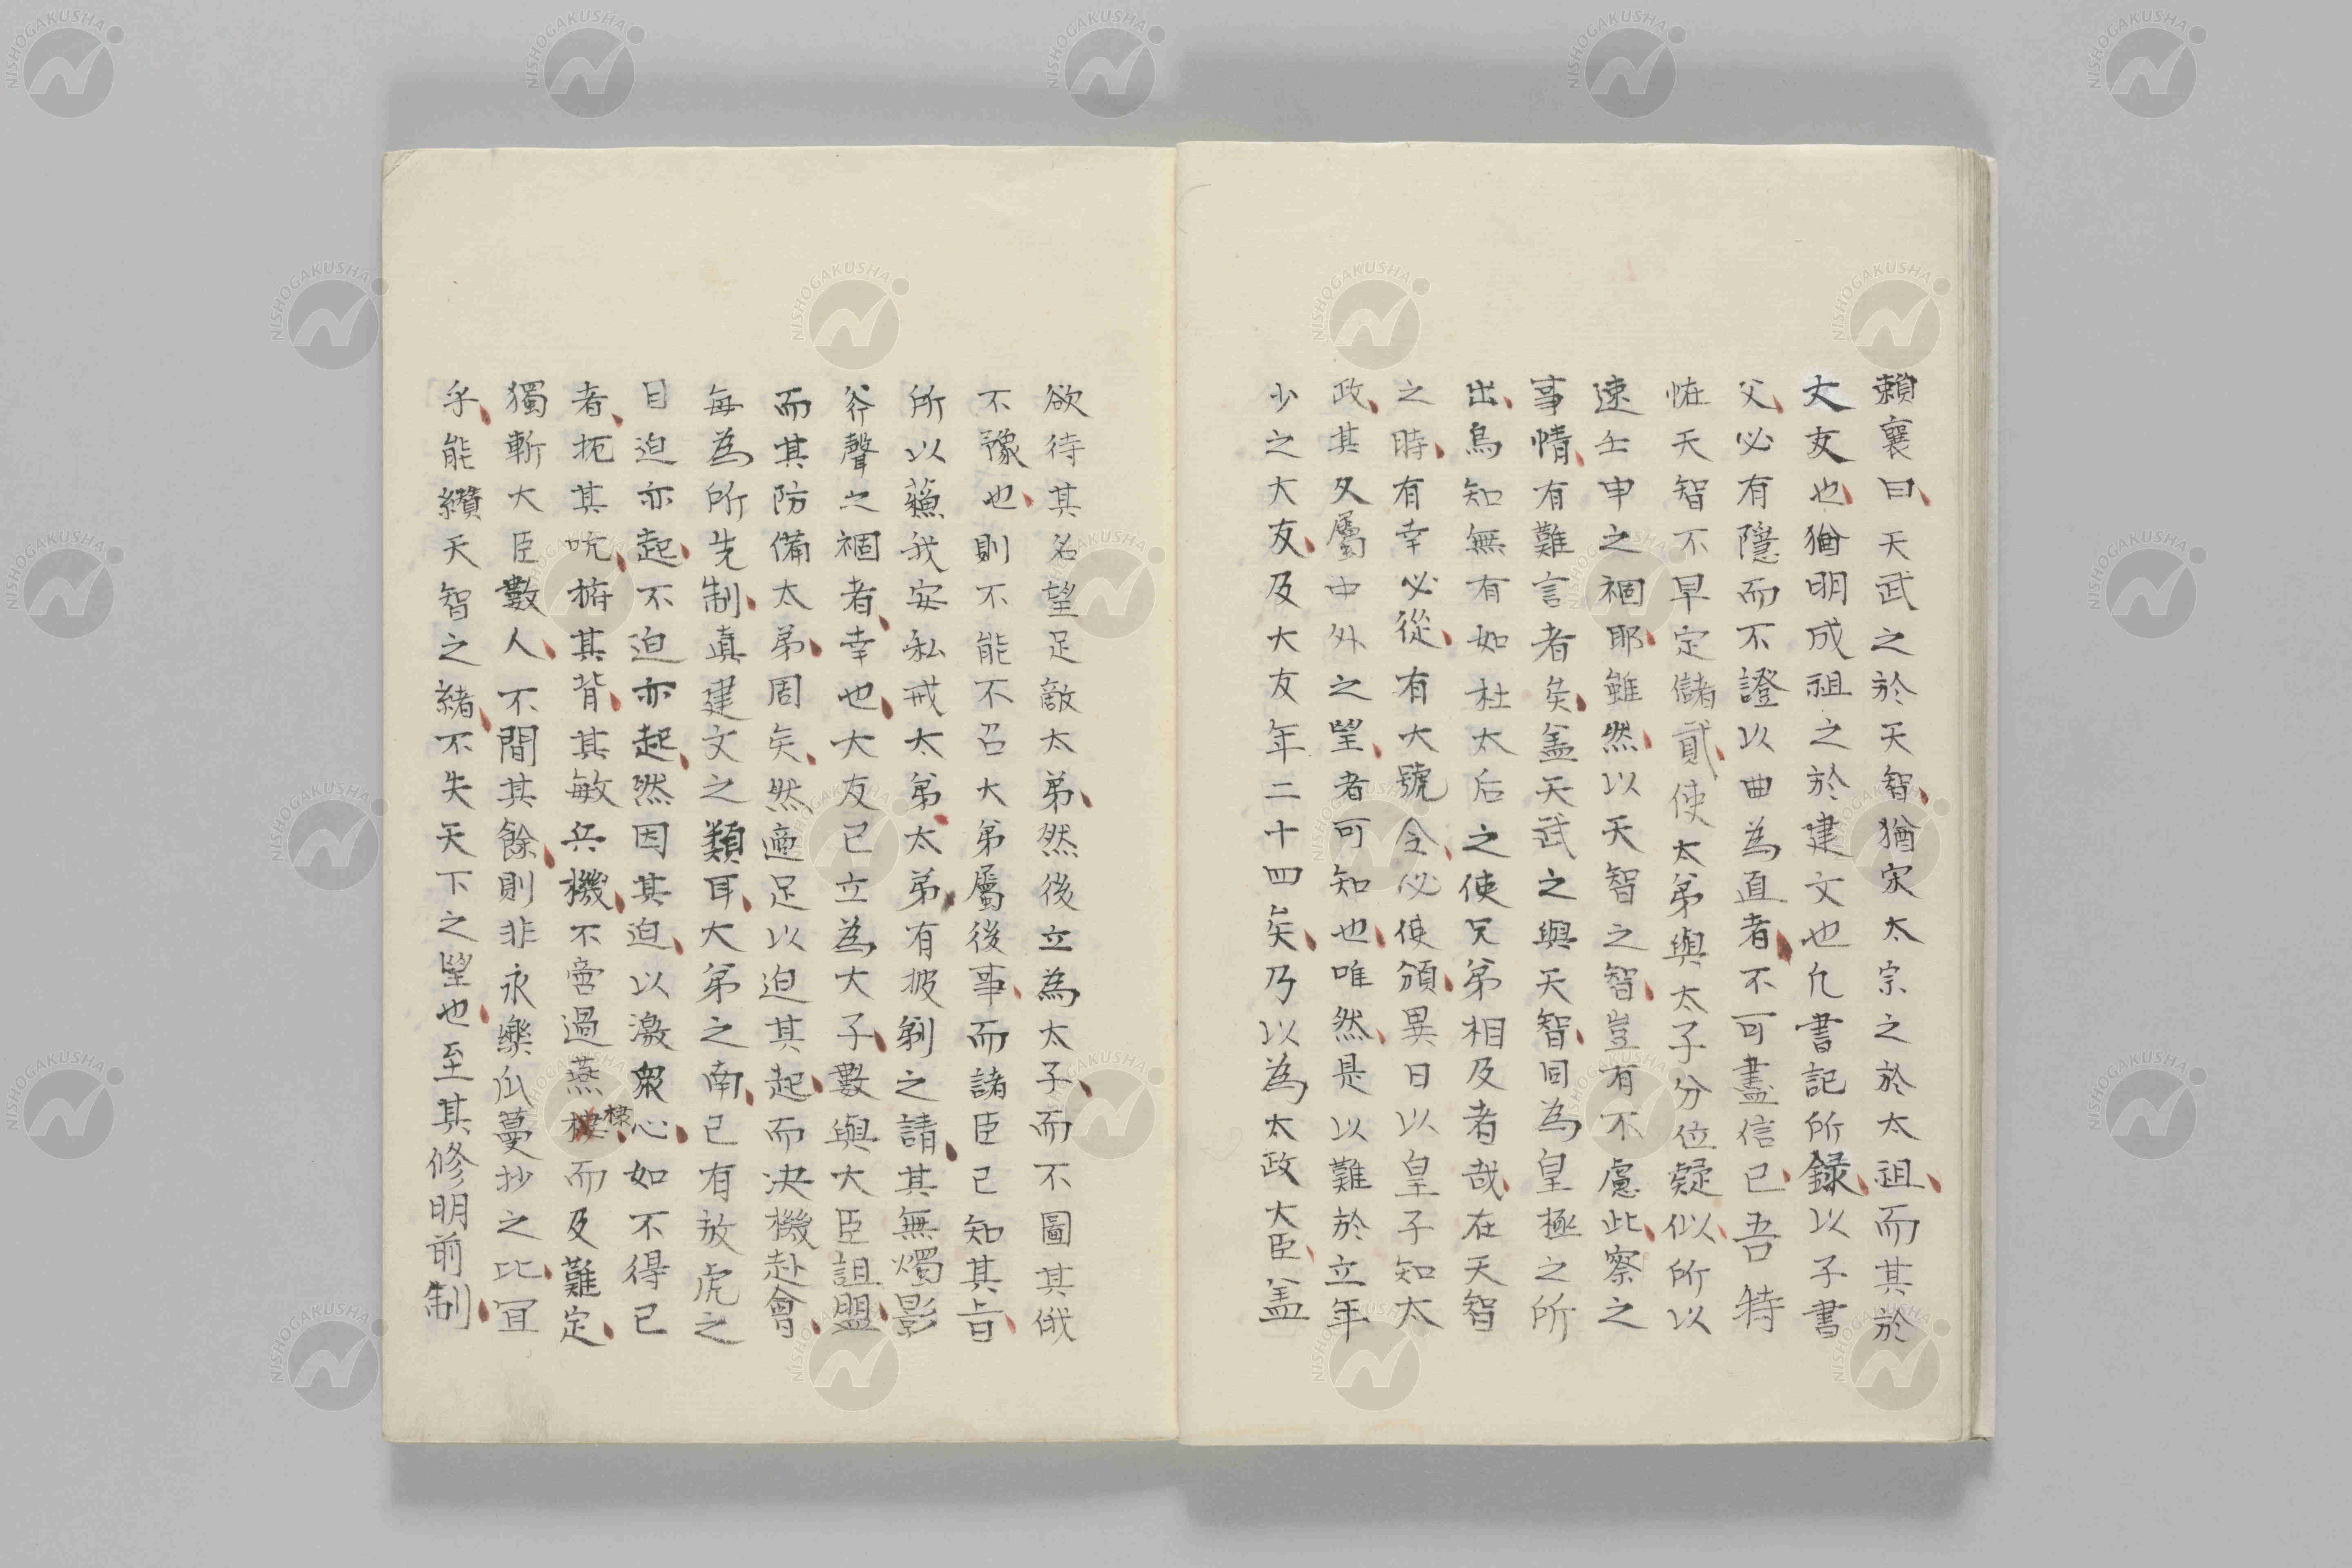 賴襄曰天武之於天智猶宋太宗之於太祖而其於
大友也猶明成祖之於建文也凡書記所録以子書
父必有隱而不證以曲為直者不可盡信已吾特
恠天智不早定儲貳使太弟與太子分位疑似所以
速壬申之禍耶雖然以天智之智豈有不慮此察之
事情有難言者矣盖天武之與天智同為皇極之所
出烏知無有如杜太后之使兄弟相及者哉在天智
之時有幸必從有大號令必使頒異日以皇子知太
政其久屬中外之望者可知也唯然是以難於立年
少之大友及大友年二十四矣乃以為太政大臣盖
欲待其名望足敵太弟然後立為太子而不圖其俄
不豫也則不能不召大弟屬後事而諸臣已知其旨
所以蘓我安私戒太弟太弟有披剃之請其無燭影
斧聲之禍者幸也大友已立為大子數與大臣詛盟
而其防備太弟周矣然適足以迫其起而决機赴會
每為所先制真建文之類耳大弟之南已有放虎之
目迫亦起不迫亦起然因其迫以激衆心如不得已
者扼其吭掎其背其敏兵機不啻過燕棣而及難定
獨斬大臣數人不間其餘則非永樂瓜蔓抄之比宜
乎能纘天智之緒不失天下之望也至其修明前制
棣
NISHOGAKUSHA